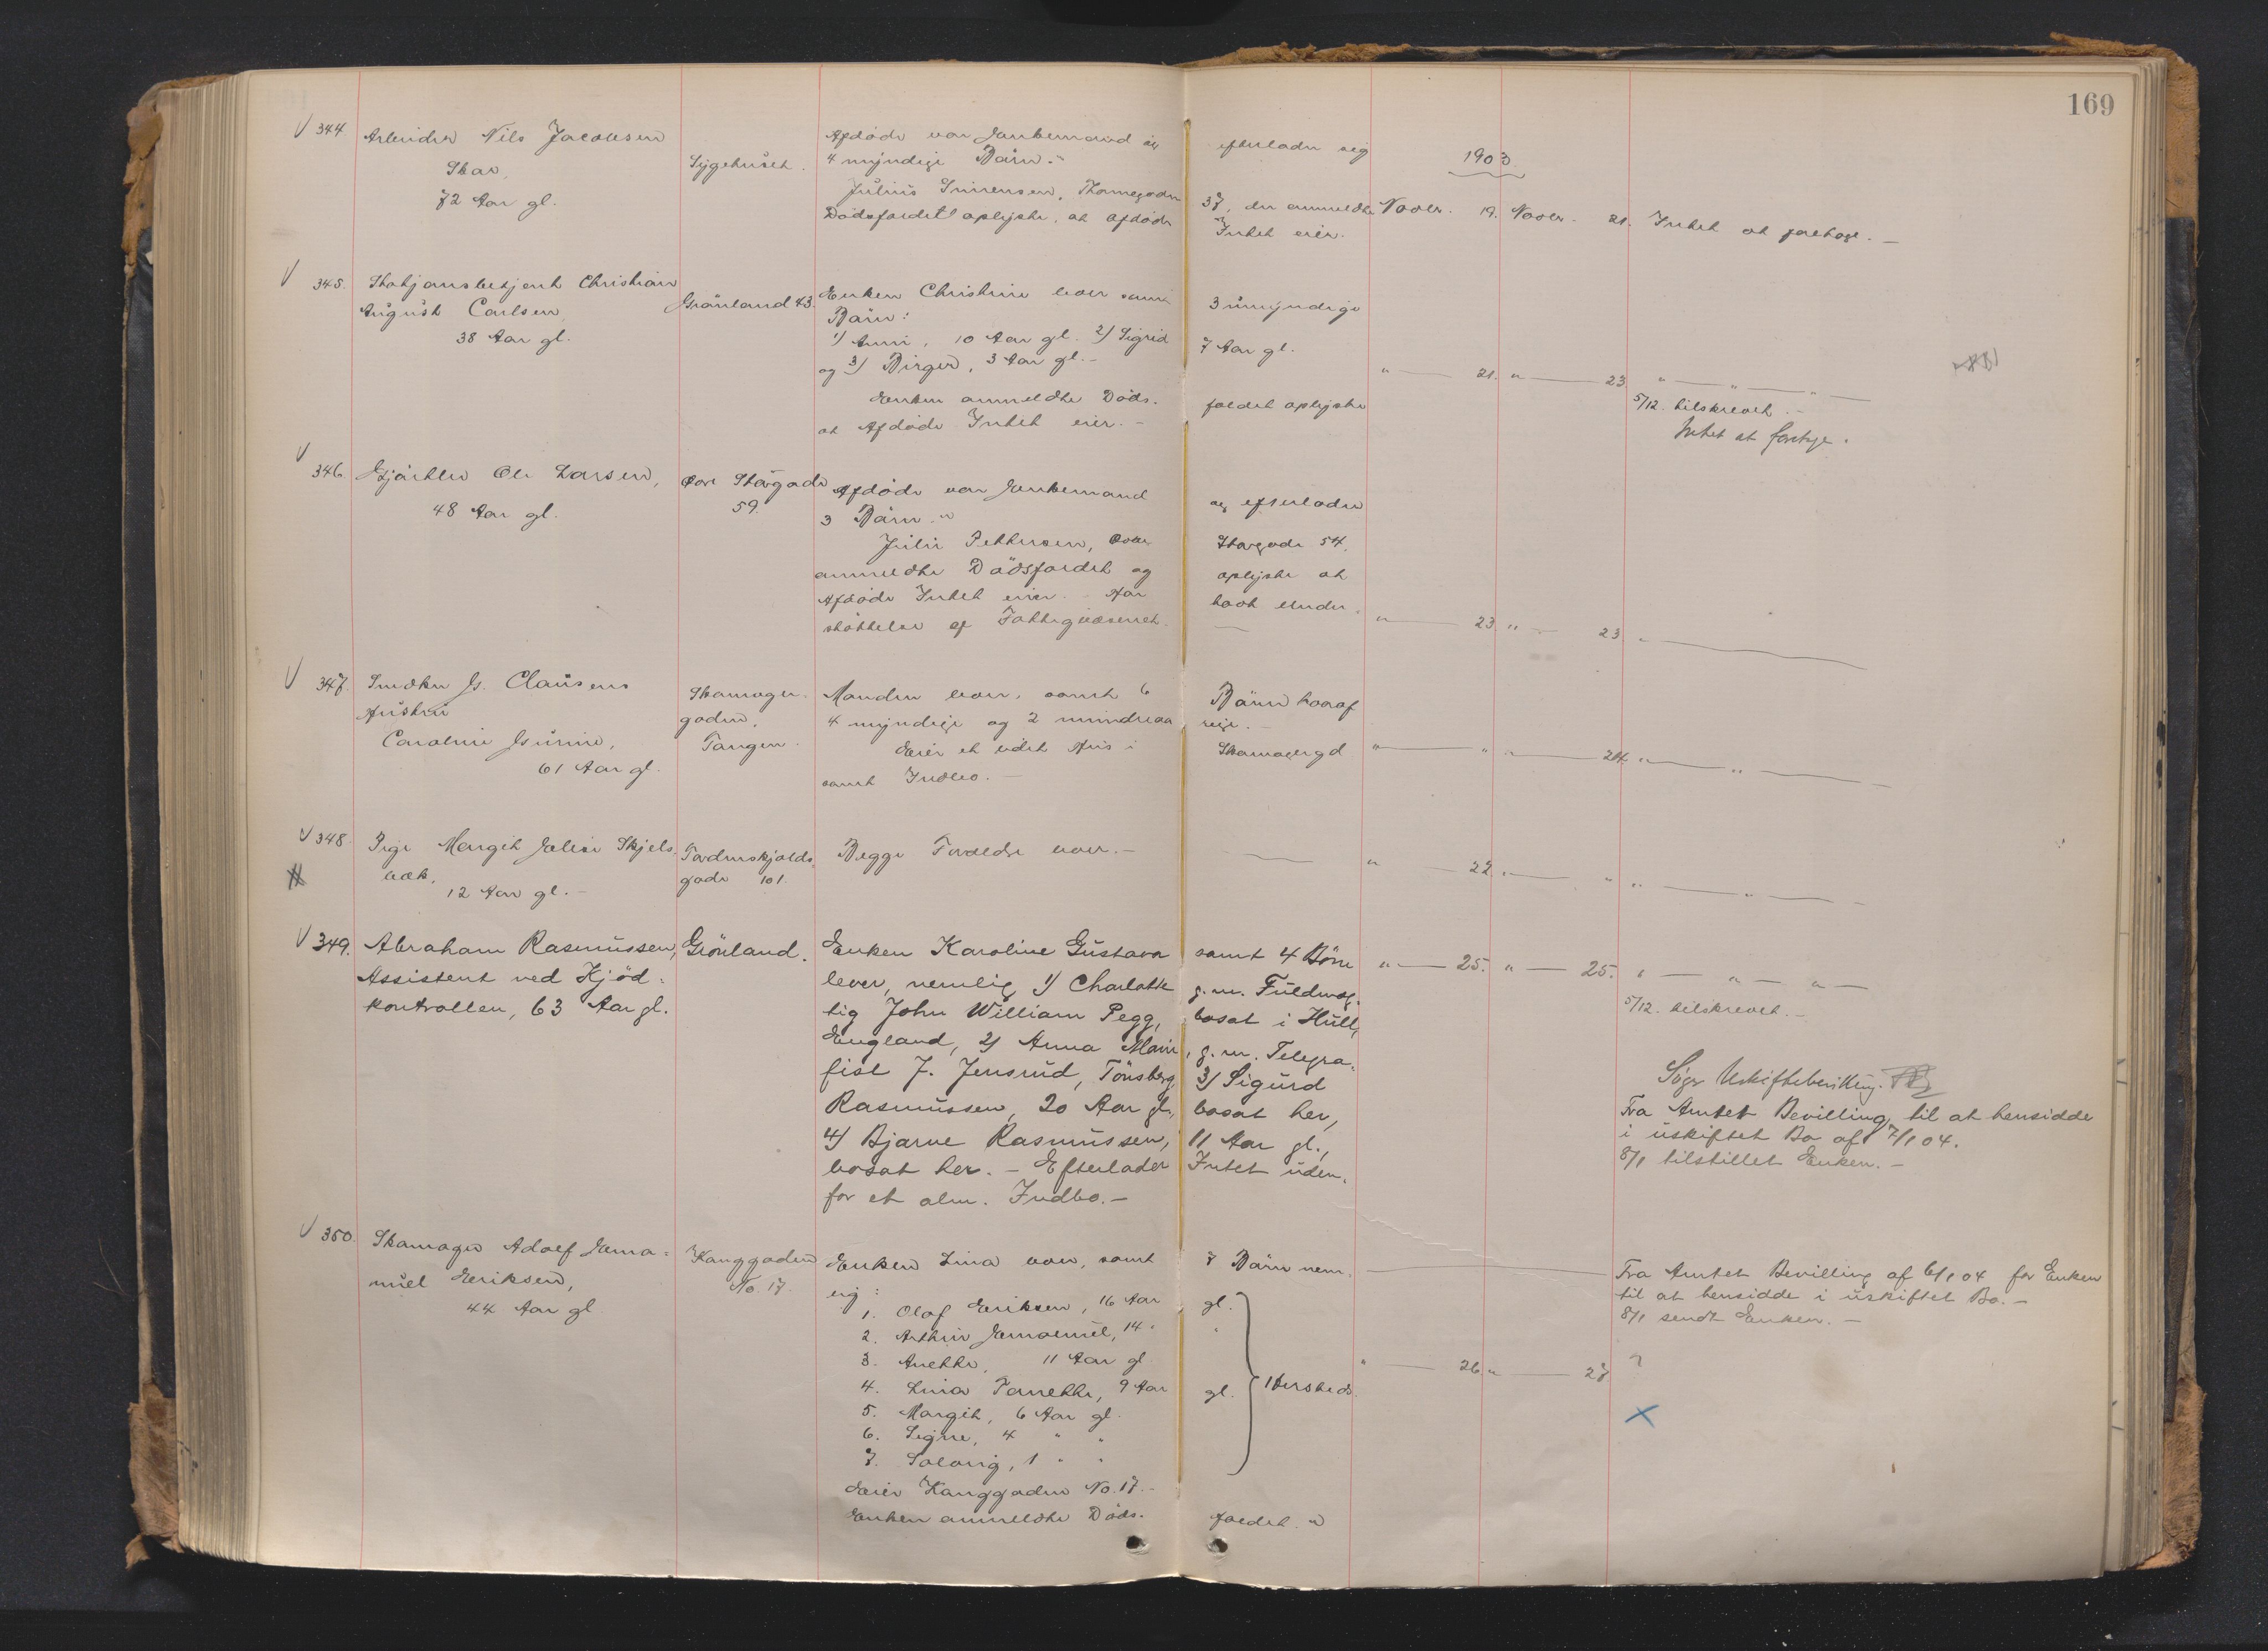 169
1903
344. Arbeider Nils Jacobsen
Skar,
72 Aar gl.
Sygehuset.
Afdöde var Enkemand og efterlader sig
4 myndige Börn.-
Julius Simensen, Thornegaden 37, der anmeldte
Dödsfaldet oplyste, at afdöde Intet eier.
Novbr. 19. Novbr. 21. Intet at foretage.-
345. Stationsbetjent Christian
August Carlsen,
38 Aar gl.
Grönland 43.
Enken Christine lever samt 3 umyndige
Börn:
1) Anni, 10 Aar gl. 2) Sigrid 7 Aar gl.
og 3) Birger, 3 Aar gl.-
Enken anmeldte Döds- faldet oplyste
at Afdöde Intet eier.-
" 21. " 23. " " "
5/12. tilskrevet.-
Intet at foretage.
346. Gjörtler Ole Larsen,
48 Aar gl.
Övre Storgade
59.
Afdöde var Enkemand og efterlader
3 Börn.-
Julie Pettersen, Övre Storgade 54,
anmeldte Dödsfaldet og oplyste at
Afdöde Intet eier.- Har havt Under-
stöttelse af Fattigvæsenet.-
" 23. " 23. "
347. Snedker Js. Clausens
Hustru
Caroline Gurine,
61 Aar gl.
Skomager-
gaden,
Tangen.
Manden lever, samt 6 Börn hvoraf
4 myndige og 2 mindreaa- rige.-
Eier et lidet Hus i Skomagergd
samt Indbo.-
" " " 24. " "
348. Pige Margit Jalise Skjels-
bæk,
12 Aar gl.-
Tordenskjolds-
gade 101.
Begge Forældre lever.-
" 22. " " " "
349. Abraham Rasmussen,
Assistent ved Kjöd-
kontrollen, 63 Aar gl.
Grönland.
Enken Karoline Gustava samt 4 Börn
lever, nemlig 1) Charlotte g. m. Fuldmæg-
tig John William Pegg, bosat i Hull,
England, 2) Anna Marie, g. m. Telegra-
fist J. Jensrud, Tönsberg, 3) Sigurd
Rasmussen, 20 Aar gl., bosat her,
4) Bjarne Rasmussen, 11 Aar gl.,
bosat her.- Efterlader Intet uden-
for et alm. Indbo.-
" 25. " 25. " " "
5/12. tilskrevet.-
Söger Uskiftebevilling.
Fra Amtet Bevilling til at hensidde
i uskiftet Bo af 7/1 04.
8/1 tilstillet Enken.-
350. Skomager Adolf Jama-
nuel Eeriksen,
44 Aar gl
Konggaden
No. 17.
Enken Lina lever, samt 7 Börn nem-
lig:
1. Olaf Eeriksen, 16 Aar gl.
2. Arthur Jamanuel, 14 " "
3. Anethe, 11 Aar gl
4. Lina Tanethe, 9 Aar gl.
5. Margit, 6 Aar gl.
6. Signe, 4 " "
7. Solveig, 1 " "
Hersteds.
Eier Konggaden No. 17.-
Enken anmeldte Döds- faldet.-
" 26. " 27
Fra Amtet Bevilling af 6/1 04 for Enken
til at hensidde i uskiftet Bo.-
8/1 sendt Enken.-